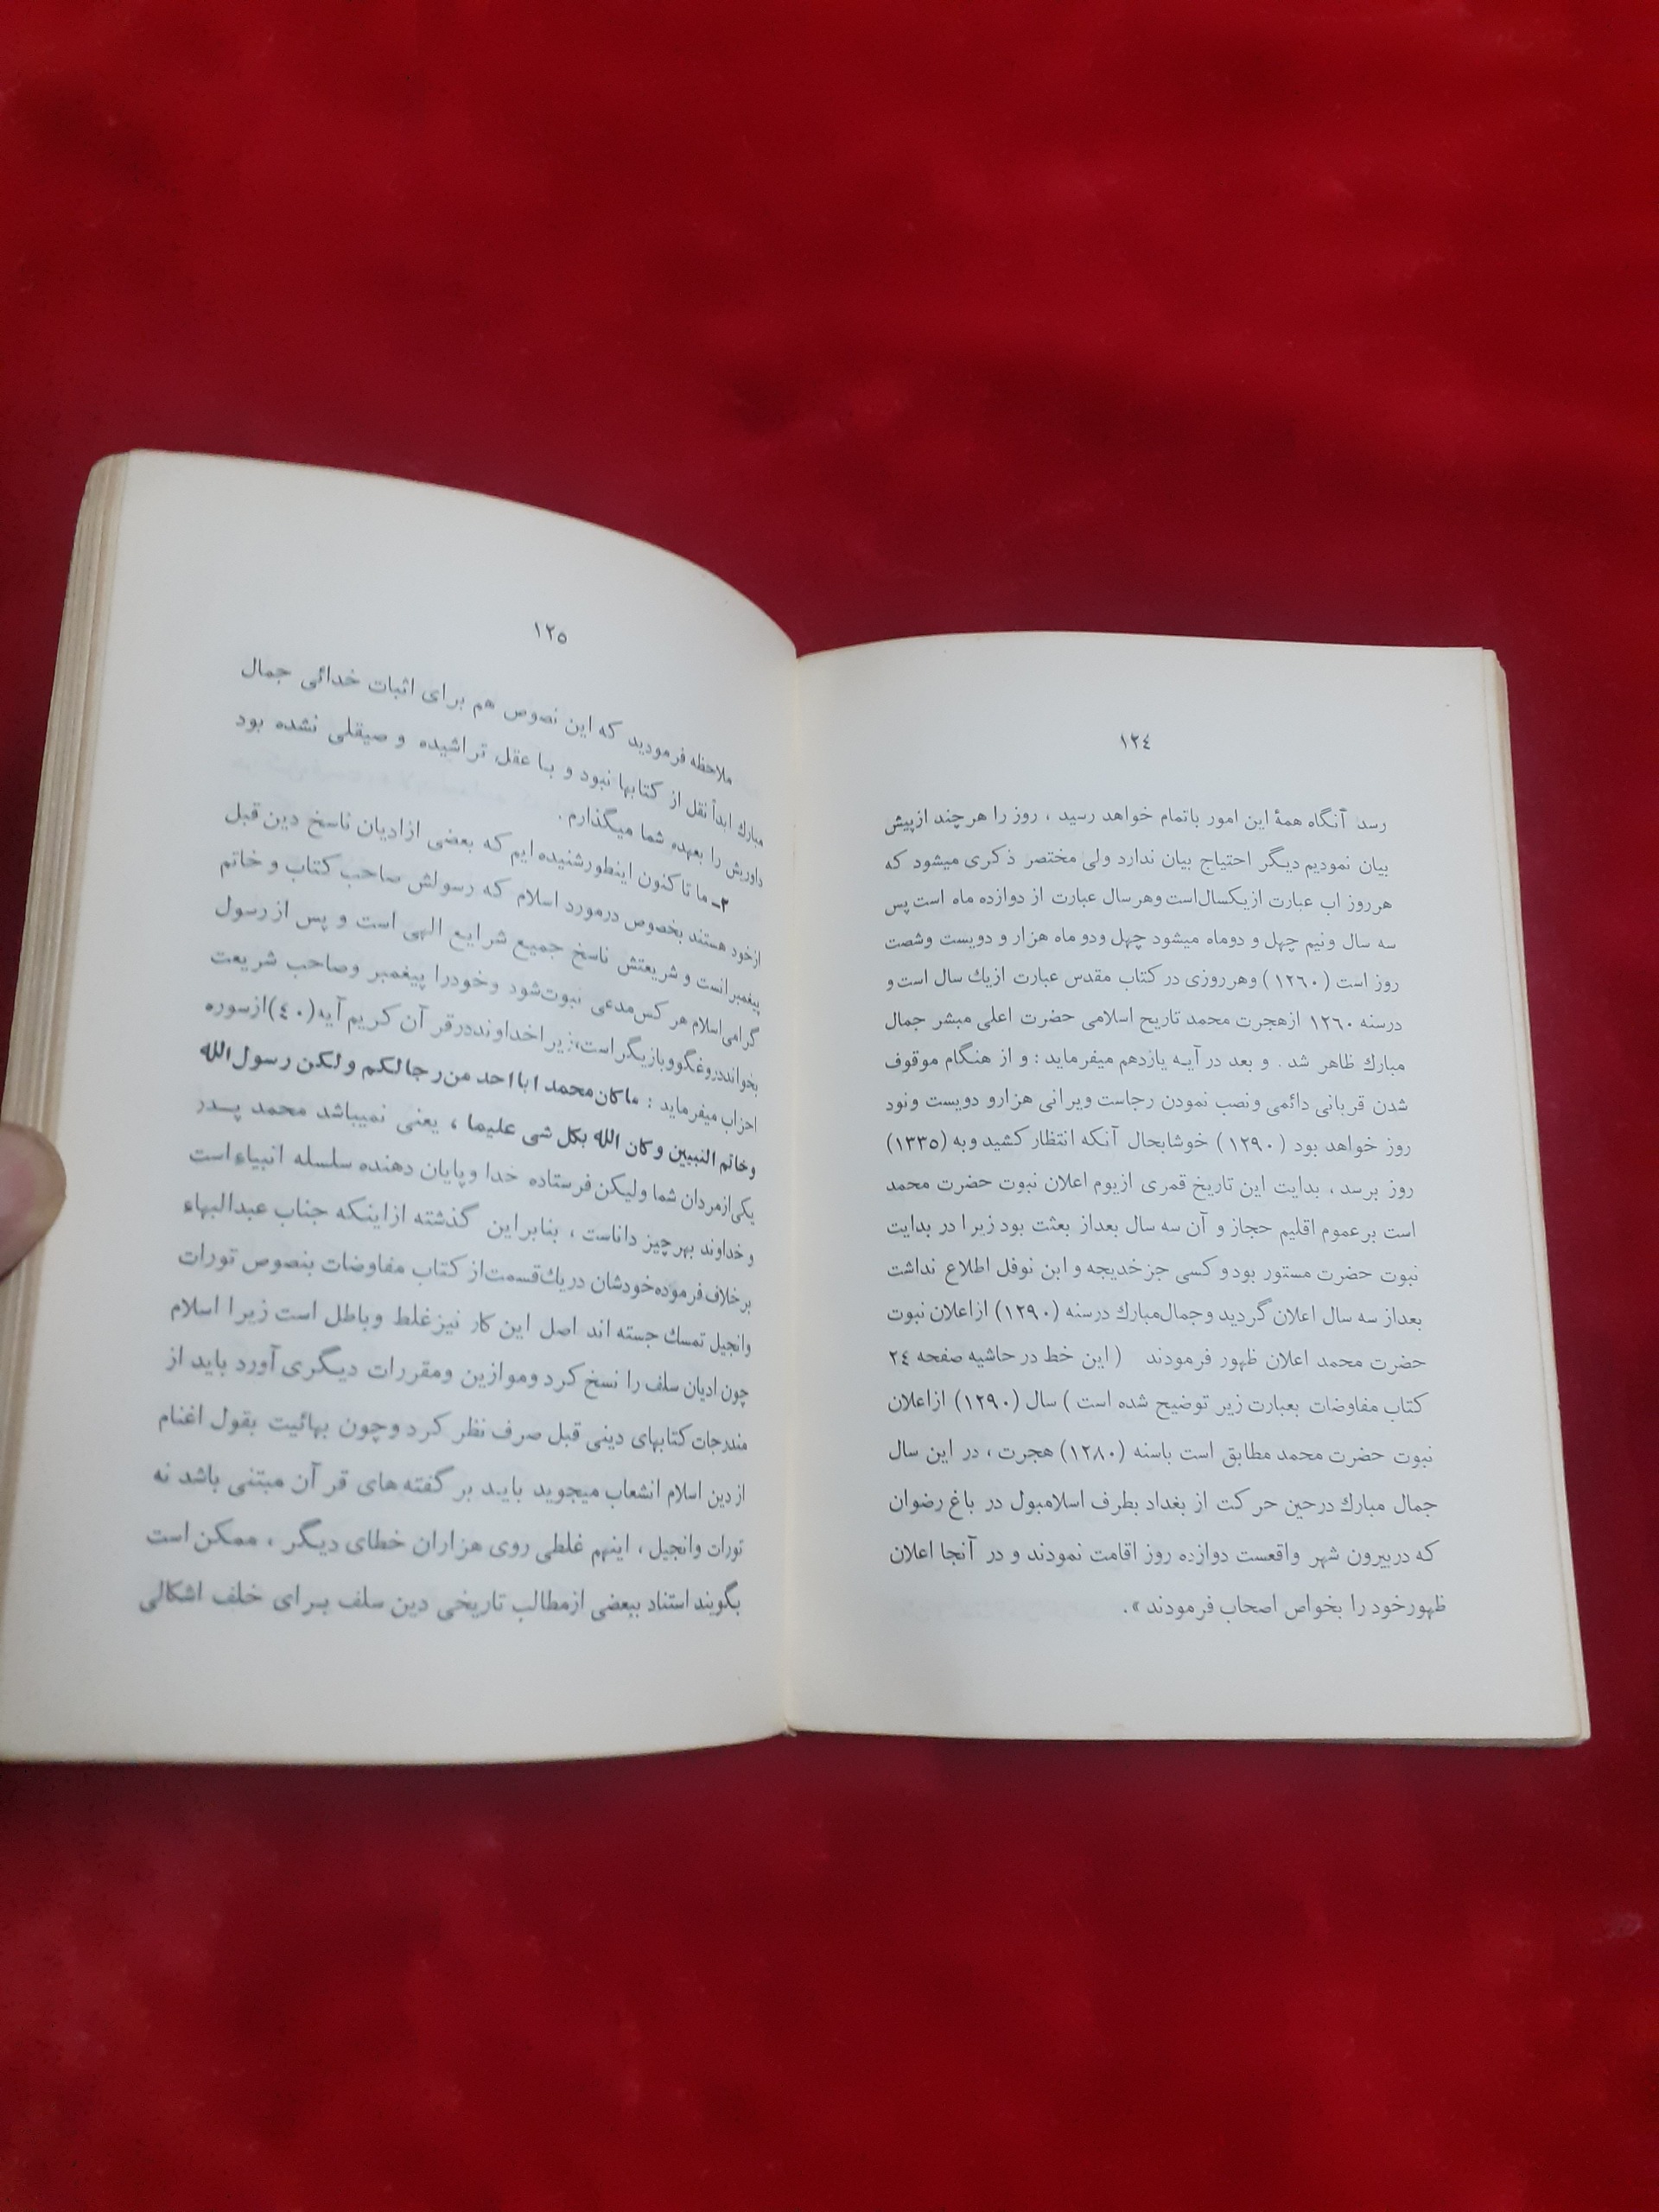 ١٢٤
رسد آنگاه همهٔ این امور باتمام خواهد رسید ، روز را هرچند ازپیش
بیان نمودیم دیگر احتیاج بیان ندارد ولی مختصر ذکری میشود که
هرروز اب عبارت ازیکسال‌است وهرسال عبارت از دوازده ماه است پس
سه سال ونیم چهل و دوماه میشود چهل ودو ماه هزار و دویست وشصت
روز است (١٢٦٠) وهرروزی در کتاب مقدس عبارت ازیك سال است و
درسنه ١٢٦٠ ازهجرت محمد تاریح اسلامی حضرت اعلی مبشر جمال
مبارك ظاهر شد . و بعد در آیـه یازدهم میفرماید : و از هنگام موقوف
شدن قربانی دائمی ونصب نمودن رجاست ویرانی هزارو دویست ونود
روز خواهد بود (١٢٩٠) خوشابحال آنکه انتظار کشید وبه (١٣٣٥)
روز برسد ، بدایت این تاریخ قمری ازیوم اعلان نبوت حضرت محمد
است برعموم اقلیم حجاز و آن سه سال بعداز بعثت بود زیرا در بدایت
نبوت حضرت مستور بود و کسی جز خدیجه و ابن نوفل اطلاع نداشت
بعداز سه سال اعلان گردید وجمال‌مبارك درسنه (١٢٩٠) ازاعلان نبوت
حضرت محمد اعلان ظهور فرمودند (این خط در حاشیه صفحه ٢٤
کتاب مفاوضات بعبارت زیر توضیح شده است) سال (١٢٩٠) ازاعلان
نبوت حضرت محمد مطابق است باسنه (١٢٨٠) هجرت ، در این سال
جمال مبارك درحین حرکت از بغداد بطرف اسلامبول در باغ رضوان
که دربیرون شهر واقعست دوازده روز اقامت نمودند و در آنجا اعلان
ظهورخود را بخواص اصحاب فرمودند » .
١٢٥
ملاحظه فرمودید که این نصوص هم برای اثبات خدائی جمال
مبارك ابداً نقل از کتابها نبود و بـا عقل تراشیده و صیقلی نشده بود
داوریش را بعهده شما میگذارم .
٢ـ ما تاکنون اینطورشنیده ایم که بعضی ازادیان ناسخ دین قبل
ازخود هستند بخصوص درمورد اسلام که رسولش صاحب کتاب و خاتم
پیغمبرانست و شریعتش ناسخ جمیع شرایع الهی است و پس از رسول
گرامی‌اسلام هر کس‌مدعی نبوت‌شود وخودرا پیغمبر وصاحب شریعت
بخوانددروغگووبازیگراست،زیراخداونددرقرآن کریم آیه(٤٠)ازسوره
احزاب میفرماید : ماکان‌محمد ابااحد من‌رجالکم ولکن رسول‌الله
وخاتم النبیین وکان الله بکل شی علیما ، یعنی نمیباشد محمد پـدر
یکی‌ازمردان شما ولیکن‌فرستاده خدا وپایان دهنده سلسله انبیاءاست
وخداوند بهرچیز داناست ، بنابراین گذشته ازاینکه جناب عبدالبهاء
برخلاف‌فرموده‌خودشان دریك‌قسمت‌از کتاب مفاوضات بنصوص تورات
وانجیل تمسك جسته اند اصل این کار نیزغلط وباطل است زیرا اسلام
چون ادیان سلف را نسخ کرد وموازین ومقررات دیـگری آورد باید از
مندرجات‌کتابهای دینی قبل صرف نظر کرد وچون بهائیت بقول اغنام
ازدین اسلام انشعاب میجوید بایـد بر گفته های قرآن مبتنی باشد نه
تورات وانجیل ، اینهم غلطی روی هزاران خطای دیـگر ، ممکن است
بگویند استناد ببعضی ازمطالب تاریخی دین سلف بـرای خلف اشکالی